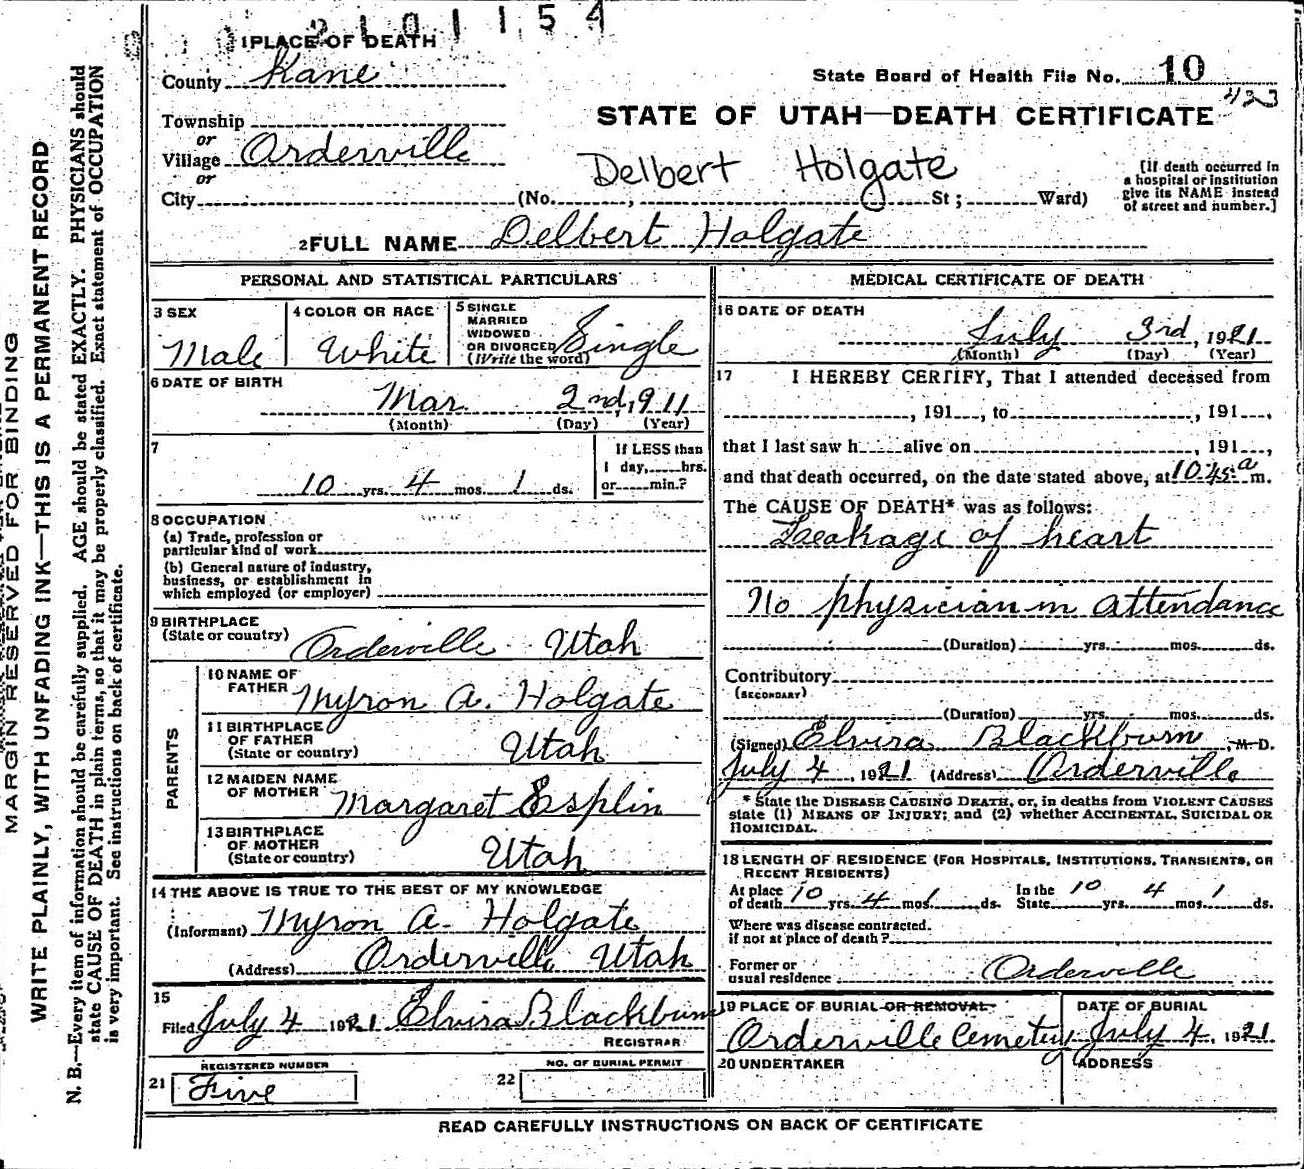 2101154
1 PLACE OF DEATH
County Kane
State Board of Health File No. 10
423
Township
STATE OF UTAH—DEATH CERTIFICATE
or
Village Orderville
Delbert Holgate
or
City (No. , St ; Ward)
[If death occurred in
a hospital or institution
give its NAME instead
of street and number.]
2 FULL NAME Delbert Holgate
PERSONAL AND STATISTICAL PARTICULARS
3 SEX
Male
4 COLOR OR RACE
White
5 SINGLE
MARRIED
WIDOWED
OR DIVORCED
(Write the word)
Single
6 DATE OF BIRTH
Mar 2nd, 1911
(Month) (Day) (Year)
7
10 yrs. 4 mos. 1 ds.
If LESS than
1 day, hrs.
or min.?
8 OCCUPATION
(a) Trade, profession or
particular kind of work
(b) General nature of industry,
business, or establishment in
which employed (or employer)
9 BIRTHPLACE
(State or country) Orderville Utah
PARENTS
10 NAME OF
FATHER Myron A. Holgate
11 BIRTHPLACE
OF FATHER
(State or country) Utah
12 MAIDEN NAME
OF MOTHER Margaret Esplin
13 BIRTHPLACE
OF MOTHER
(State or country) Utah
14 THE ABOVE IS TRUE TO THE BEST OF MY KNOWLEDGE
(Informant) Myron A. Holgate
(Address) Orderville Utah
15
Filed July 4 1921 Elvira Blackburn
REGISTRAR
REGISTERED NUMBER
21 Five
NO. OF BURIAL PERMIT
22
MEDICAL CERTIFICATE OF DEATH
16 DATE OF DEATH
July 3rd, 1921
(Month) (Day) (Year)
17 I HEREBY CERTIFY, That I attended deceased from
, 191 , to , 191 ,
that I last saw h alive on , 191 ,
and that death occurred, on the date stated above, at 10.45 a m.
The CAUSE OF DEATH* was as follows:
Leakage of heart
No physician in attendance
(Duration) yrs. mos. ds.
Contributory
(SECONDARY)
(Duration) yrs. mos. ds.
(Signed) Elvira Blackburn , M. D.
July 4, 1921 (Address) Orderville
* State the DISEASE CAUSING DEATH, or, in deaths from VIOLENT CAUSES
state (1) MEANS OF INJURY; and (2) whether ACCIDENTAL, SUICIDAL OR
HOMICIDAL.
18 LENGTH OF RESIDENCE (FOR HOSPITALS, INSTITUTIONS, TRANSIENTS, OR
RECENT RESIDENTS)
At place
of death 10 yrs. 4 mos. 1 ds.
In the
State 10 yrs. 4 mos. 1 ds.
Where was disease contracted,
if not at place of death?
Former or
usual residence Orderville
19 PLACE OF BURIAL OR REMOVAL
Orderville Cemetery
DATE OF BURIAL
July 4, 1921
20 UNDERTAKER
ADDRESS
READ CAREFULLY INSTRUCTIONS ON BACK OF CERTIFICATE
MARGIN RESERVED FOR BINDING
WRITE PLAINLY, WITH UNFADING INK—THIS IS A PERMANENT RECORD
N. B.—Every item of information should be carefully supplied. AGE should be stated EXACTLY. PHYSICIANS should
state CAUSE OF DEATH in plain terms, so that it may be properly classified. Exact statement of OCCUPATION
is very important. See instructions on back of certificate.